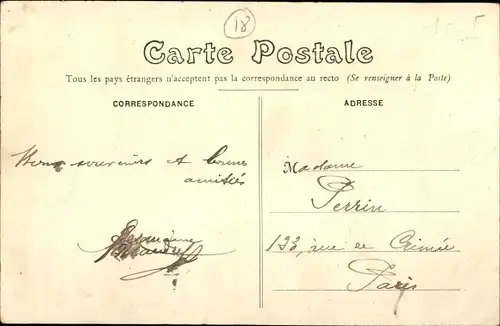 18
Carte Postale
Tous les pays étrangers n'acceptent pas la correspondance au recto (Se renseigner à la Poste)
CORRESPONDANCE
ADRESSE
souvenirs et bonnes
amitiés
Germaine
Madame
Perrin
133, rue de Crimée
Paris